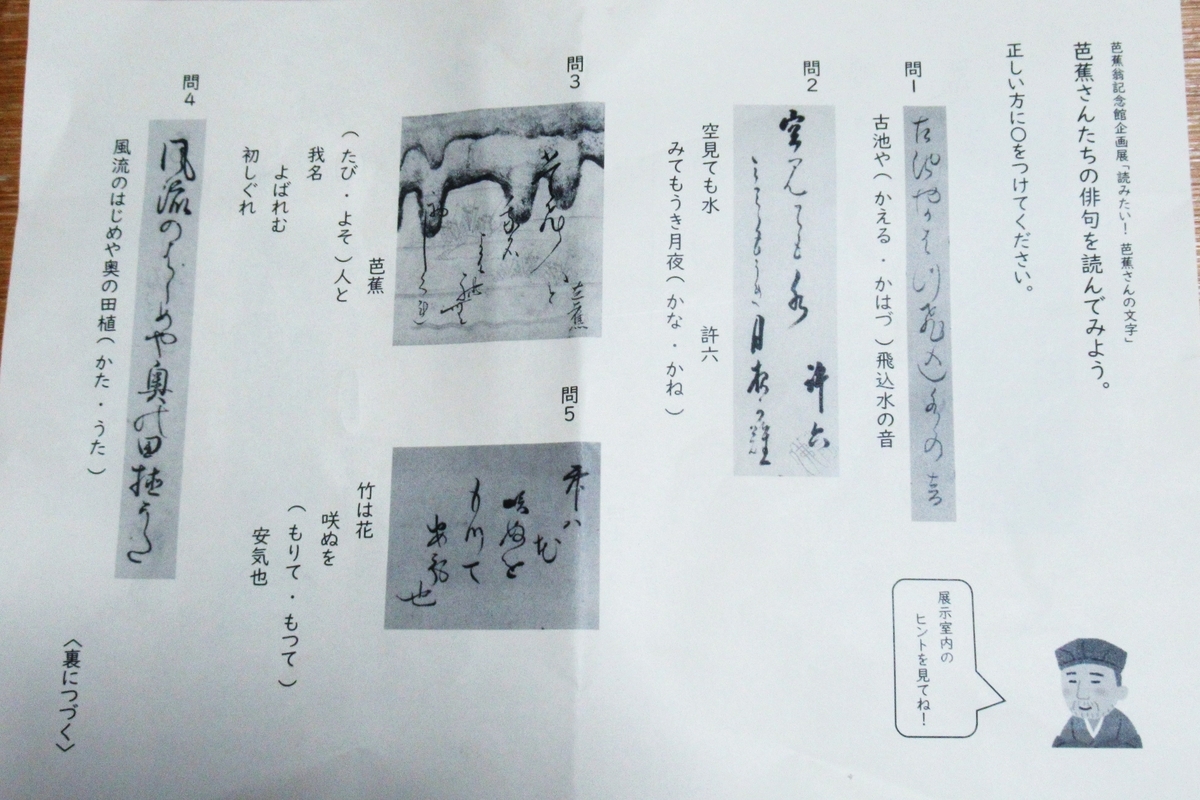 芭蕉翁記念館企画展「読みたい！ 芭蕉さんの文字」
芭蕉さんたちの俳句を読んでみよう。
正しい方に〇をつけてください。
展示室内の
ヒントを見てね！
問1
古池や（ かえる ・ かはづ ）飛込水の音
問2
許六
空見ても水　許六
みてもうき月夜（ かな ・ かね ）
問3
芭蕉
芭蕉
（ たび ・ よそ ）人と
我名
よばれむ
初しぐれ
問5
竹は花
咲ぬを
（ もりて ・ もつて ）
安気也
問4
風流のはじめや奥の田植（ かた ・ うた ）
〈裏につづく〉